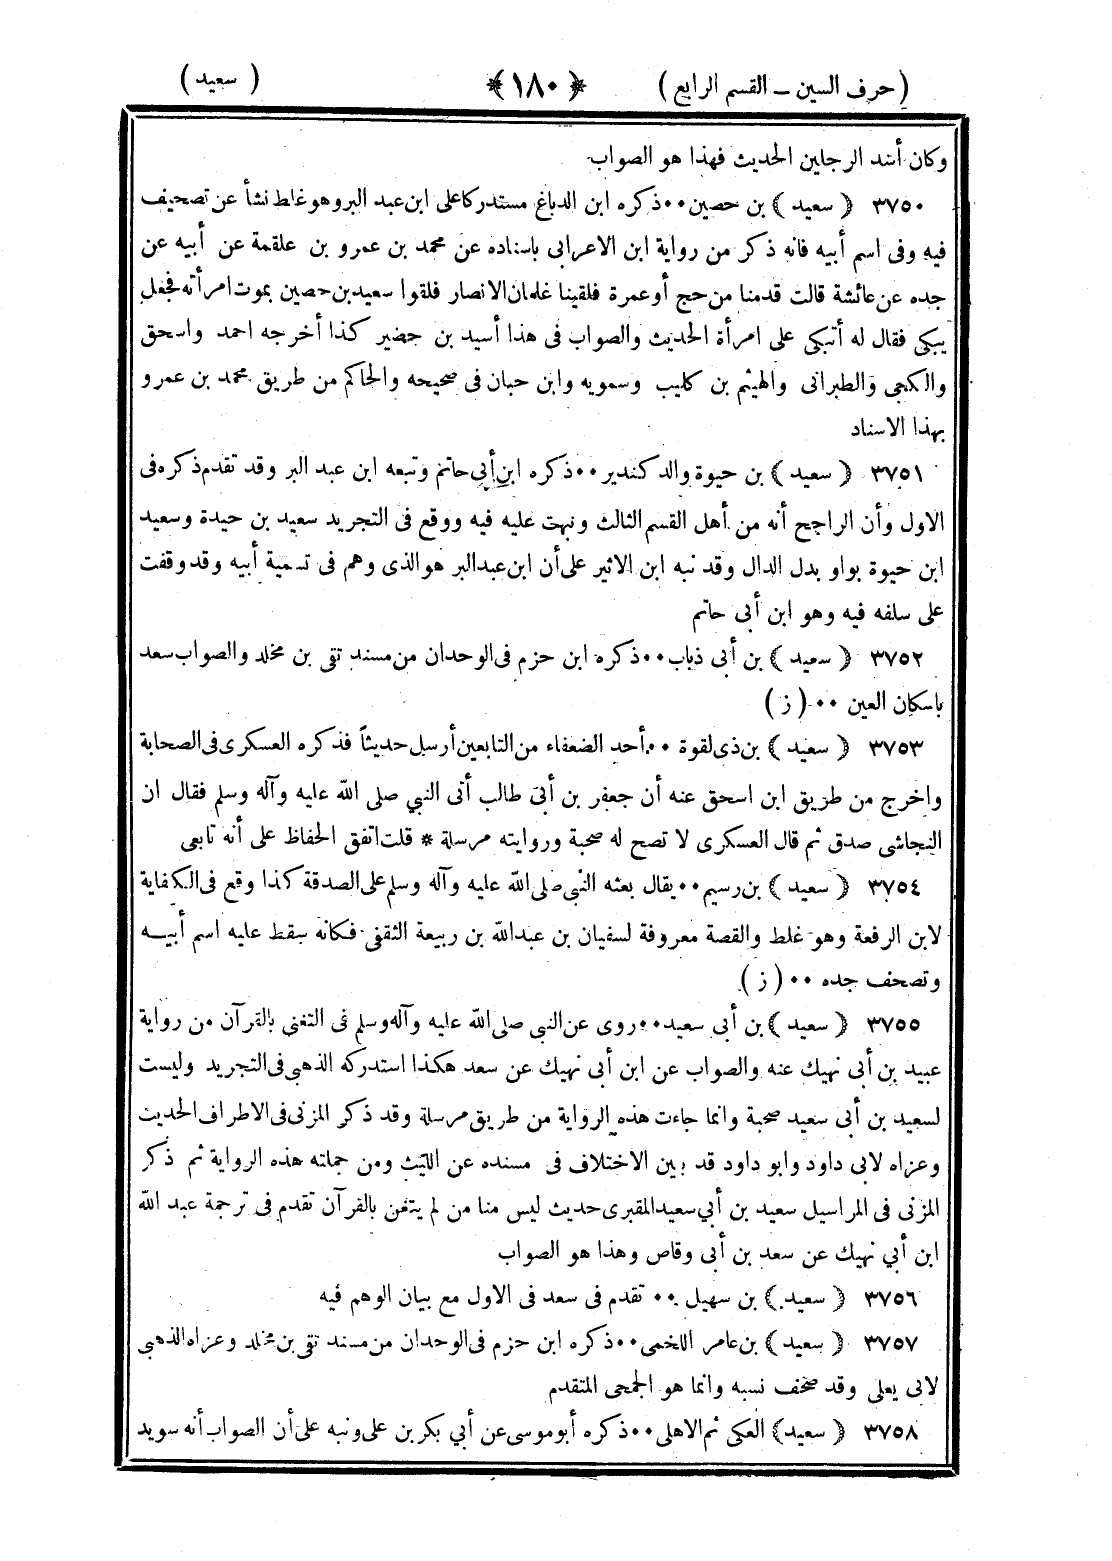 (حرف السين ــ القسم الرابع) ﴿١٨٠﴾ (سعيد)
وكان أشد الرجلين الحديث فهذا هو الصواب
٣٧٥٠ ﴿ سعيد ﴾ بن حصين ٠٠ ذكره ابن الدباغ مستدركا على ابن عبد البر وهو غلط نشأ عن تصحيف
فيه وفى اسم أبيه فانه ذكر من رواية ابن الاعرابى باسناده عن محمد بن عمرو بن علقمة عن أبيه عن
جده عن عائشة قالت قدمنا من حج أو عمرة فلقينا غلمان الانصار فلقوا سعيد بن حصين بموت امرأته فجعل
يبكى فقال له أتبكى على امرأة الحديث والصواب فى هذا أسيد بن حضير كذا أخرجه احمد واسحق
والكجى والطبرانى والهيثم بن كليب وسمويه وابن حبان فى صحيحه والحاكم من طريق محمد بن عمرو
بهذا الاسناد
٣٧٥١ ﴿ سعيد ﴾ بن حيوة والد كندير ٠٠ ذكره ابن أبي حاتم وتبعه ابن عبد البر وقد تقدم ذكره فى
الاول وأن الراجح أنه من أهل القسم الثالث ونبهت عليه فيه ووقع فى التجريد سعيد بن حيدة وسعيد
ابن حيوة بواو بدل الدال وقد نبه ابن الاثير على أن ابن عبد البر هو الذى وهم فى تسمية أبيه وقد وقفت
على سلفه فيه وهو ابن أبى حاتم
٣٧٥٢ ﴿ سعيد ﴾ بن أبى ذباب ٠٠ ذكره ابن حزم فى الوحدان من مسند تقى بن مخلد والصواب سعد
باسكان العين ٠٠ ( ز )
٣٧٥٣ ﴿ سعيد ﴾ بن ذى لقوة ٠٠ أحد الضعفاء من التابعين أرسل حديثاً فذكره العسكرى فى الصحابة
واخرج من طريق ابن اسحق عنه أن جعفر بن أبى طالب أتى النبي صلى الله عليه وآله وسلم فقال ان
النجاشى صدق ثم قال العسكرى لا تصح له صحبة وروايته مرسلة * قلت اتفق الحفاظ على أنه تابعى
٣٧٥٤ ﴿ سعيد ﴾ بن رسيم ٠٠ يقال بعثه النبي صلى الله عليه وآله وسلم على الصدقة كذا وقع فى الكفاية
لابن الرفعة وهو غلط والقصة معروفة لسفيان بن عبدالله بن ربيعة الثقفى فكانه سقط عليه اسم أبيه
وتصحف جده ٠٠ ( ز )
٣٧٥٥ ﴿ سعيد ﴾ بن أبى سعيد ٠٠ روى عن النبى صلى الله عليه وآله وسلم فى التغنى بالقرآن من رواية
عبيد بن أبى نهيك عنه والصواب عن ابن أبى نهيك عن سعد هكذا استدركه الذهبى فى التجريد وليست
لسعيد بن أبى سعيد صحبة وانما جاءت هذه الرواية من طريق مرسلة وقد ذكر المزنى فى الاطراف الحديث
وعزاه لابى داود وابو داود قد بين الاختلاف فى مسنده عن الليث ومن جملته هذه الرواية ثم ذكر
المزنى فى المراسيل سعيد بن أبي سعيد المقبرى حديث ليس منا من لم يتغن بالقرآن تقدم فى ترجمة عبد الله
ابن أبي نهيك عن سعد بن أبى وقاص وهذا هو الصواب
٣٧٥٦ ﴿ سعيد ﴾ بن سهيل ٠٠ تقدم فى سعد فى الاول مع بيان الوهم فيه
٣٧٥٧ ﴿ سعيد ﴾ بن عامر اللخمى ٠٠ ذكره ابن حزم فى الوحدان من مسند تقى بن مخلد وعزاه الذهبى
لابى يعلى وقد صحف نسبه وانما هو الجمحى المتقدم
٣٧٥٨ ﴿ سعيد ﴾ العكى ثم الاهلى ٠٠ ذكره أبو موسى عن أبي بكر بن على ونبه على أن الصواب أنه سويد